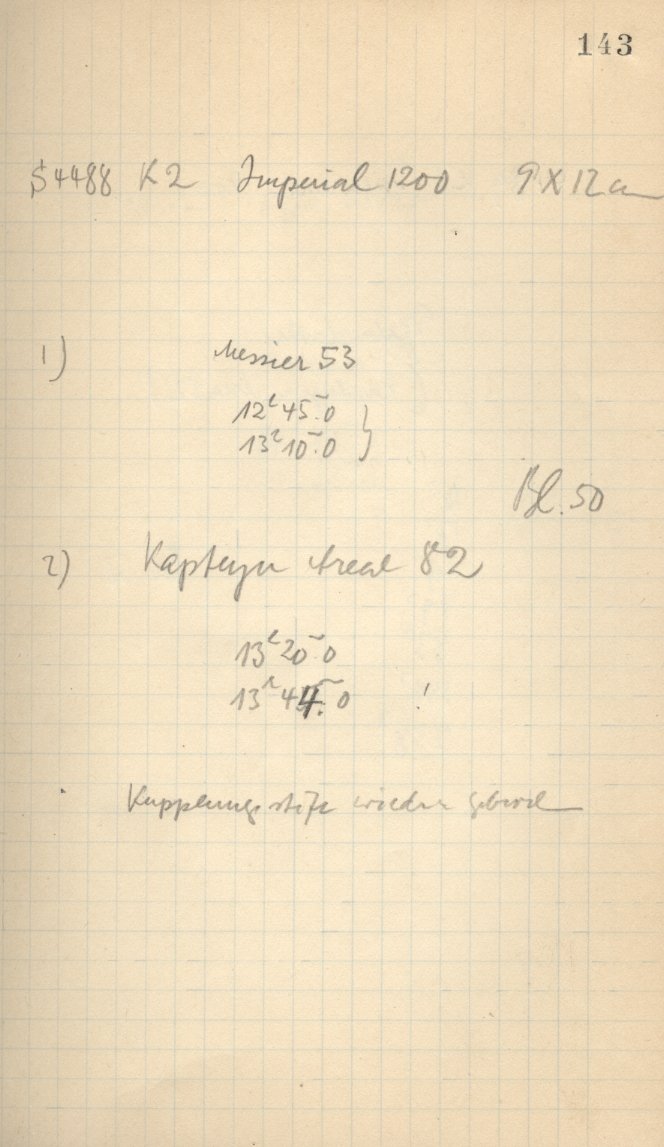 143
S4488 K2 Imperial 1200 9 X 12 cm
1) Messier 53
12ʰ 45ᵐ.0
13ʰ 10ᵐ.0
Bl. 50
2) Kapteyn Areal 82
13ʰ 20ᵐ.0
13ʰ 44ᵐ.0 !
Kupplungsstift wieder